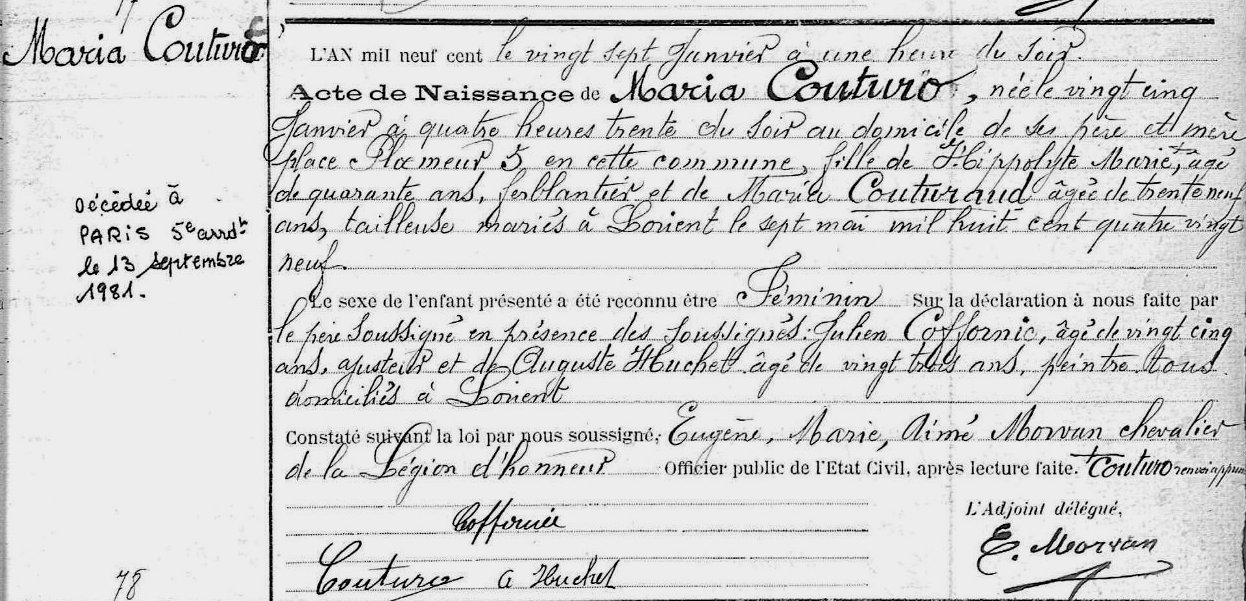 Maria Couturo
L'AN mil neuf cent le vingt sept Janvier à une heure du soir.
Acte de Naissance de Maria Couturo, née le vingt cinq
Janvier à quatre heures trente du soir au domicile de ses père et mère
place Plœmeur 5, en cette commune, fille de Hippolyte Marie, + âgé
de quarante ans, ferblantier et de Maria Couturaud âgée de trente neuf
ans, tailleuse mariés à Lorient le sept mai mil huit cent quatre vingt
neuf.
Décédée à
PARIS 5e arrdt
le 13 septembre
1981.
Le sexe de l'enfant présenté a été reconnu être Féminin Sur la déclaration à nous faite par
le père soussigné en présence des soussignés: Julien Coffornic, âgé de vingt cinq
ans, ajusteur et de Auguste Huchet âgé de vingt trois ans, peintre tous
domiciliés à Lorient
Constaté suivant la loi par nous soussigné, Eugène, Marie, Aimé Morvan chevalier
de la Légion d'honneur Officier public de l'Etat Civil, après lecture faite. + Couturo renvoi appr
L'Adjoint délégué,
E. Morvan
Couturo A Huchet
78